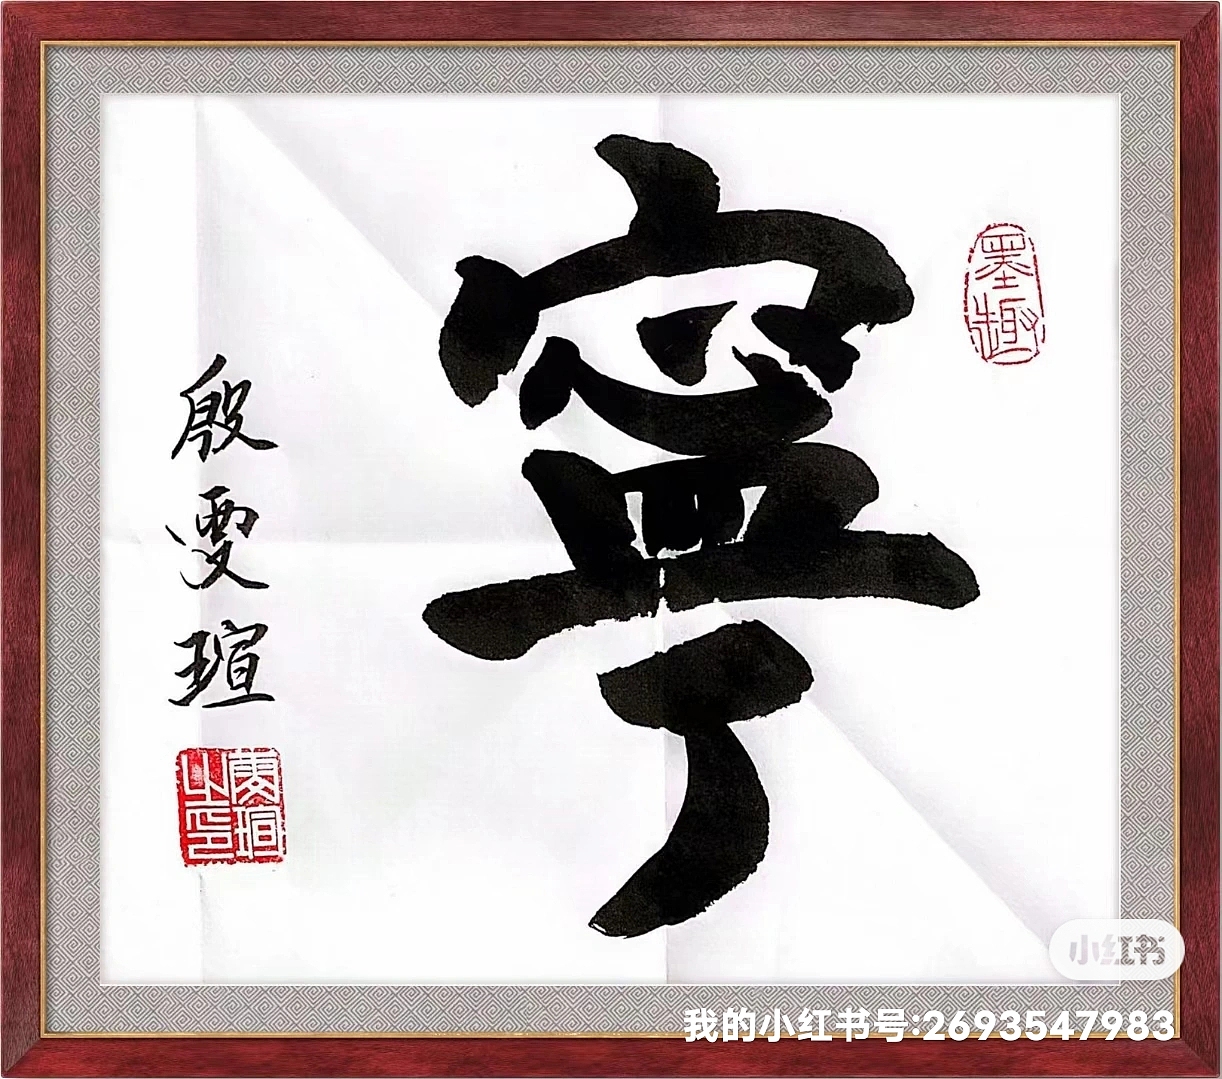 寧
墨趣
殷雯瑄
雯瑄之印
小红书
我的小红书号:2693547983